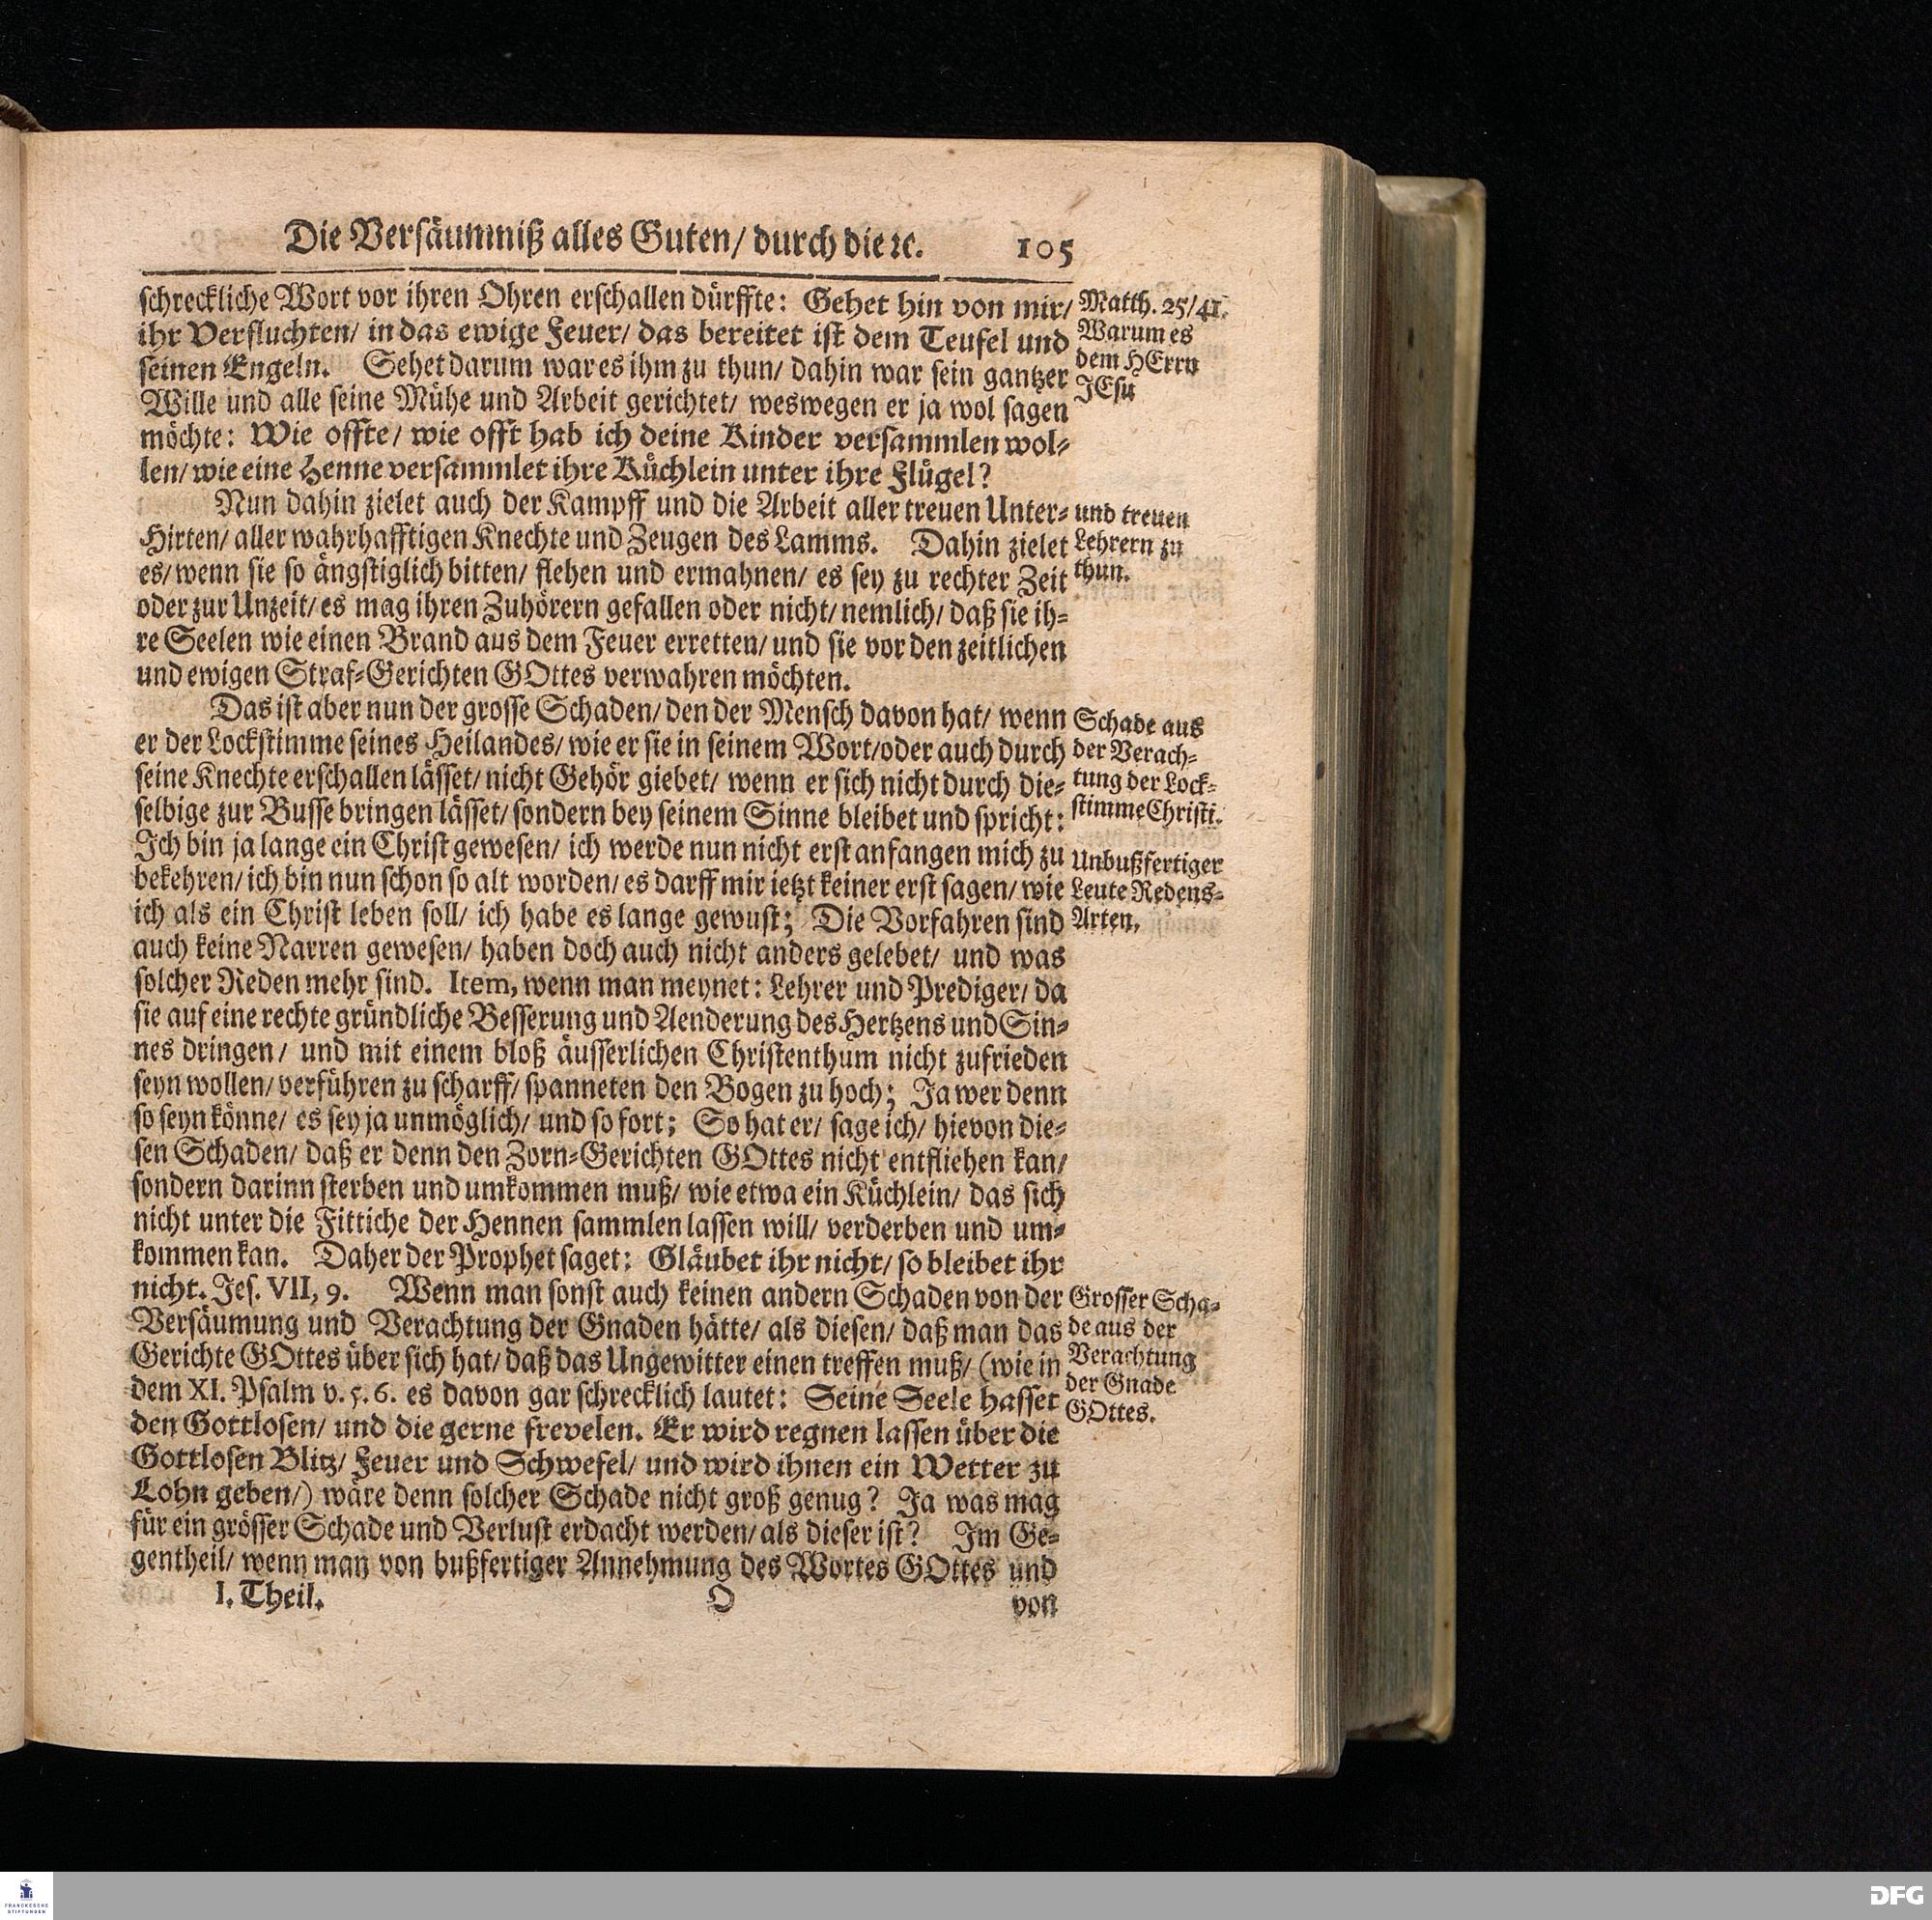 Die Versäumniß alles Guten/ durch die ꝛc. 105
schreckliche Wort vor ihren Ohren erschallen dürffte: Gehet hin von mir/
ihr Verfluchten/ in das ewige Feuer/ das bereitet ist dem Teufel und
seinen Engeln. Sehet darum war es ihm zu thun/ dahin war sein gantzer
Wille und alle seine Mühe und Arbeit gerichtet/ weswegen er ja wol sagen
möchte: Wie offte/ wie offt hab ich deine Kinder versammlen wol-
len/ wie eine Henne versammlet ihre Küchlein unter ihre Flügel?
Matth. 25/41.
Warum es
dem HErrn
JEsu
Nun dahin zielet auch der Kampff und die Arbeit aller treuen Unter-
Hirten/ aller wahrhafftigen Knechte und Zeugen des Lamms. Dahin zielet
es/ wenn sie so ängstiglich bitten/ flehen und ermahnen/ es sey zu rechter Zeit
oder zur Unzeit/ es mag ihren Zuhörern gefallen oder nicht/ nemlich/ daß sie ih-
re Seelen wie einen Brand aus dem Feuer erretten/ und sie vor den zeitlichen
und ewigen Straf-Gerichten GOttes verwahren möchten.
und treuen
Lehrern zu
thun.
Das ist aber nun der grosse Schaden/ den der Mensch davon hat/ wenn
er der Lockstimme seines Heilandes/ wie er sie in seinem Wort/ oder auch durch
seine Knechte erschallen lässet/ nicht Gehör giebet/ wenn er sich nicht durch die-
selbige zur Busse bringen lässet/ sondern bey seinem Sinne bleibet und spricht:
Ich bin ja lange ein Christ gewesen/ ich werde nun nicht erst anfangen mich zu
bekehren/ ich bin nun schon so alt worden/ es darff mir ietzt keiner erst sagen/ wie
ich als ein Christ leben soll/ ich habe es lange gewust; Die Vorfahren sind
auch keine Narren gewesen/ haben doch auch nicht anders gelebet/ und was
solcher Reden mehr sind. Item, wenn man meynet: Lehrer und Prediger/ da
sie auf eine rechte gründliche Besserung und Aenderung des Hertzens und Sin-
nes dringen/ und mit einem bloß äusserlichen Christenthum nicht zufrieden
seyn wollen/ verführen zu scharff/ spanneten den Bogen zu hoch; Ja wer denn
so seyn könne/ es sey ja unmöglich/ und so fort; So hat er/ sage ich/ hievon die-
sen Schaden/ daß er denn den Zorn-Gerichten GOttes nicht entfliehen kan/
sondern darinn sterben und umkommen muß/ wie etwa ein Küchlein/ das sich
nicht unter die Fittiche der Hennen sammlen lassen will/ verderben und um-
kommen kan. Daher der Prophet saget: Gläubet ihr nicht/ so bleibet ihr
nicht. Jes. VII, 9. Wenn man sonst auch keinen andern Schaden von der
Versäumung und Verachtung der Gnaden hätte/ als diesen/ daß man das
Gerichte GOttes über sich hat/ daß das Ungewitter einen treffen muß/ (wie in
dem XI. Psalm v. 5. 6. es davon gar schrecklich lautet: Seine Seele hasset
den Gottlosen/ und die gerne frevelen. Er wird regnen lassen über die
Gottlosen Blitz/ Feuer und Schwefel/ und wird ihnen ein Wetter zu
Lohn geben/) wäre denn solcher Schade nicht groß genug? Ja was mag
für ein grösser Schade und Verlust erdacht werden/ als dieser ist? Im Ge-
gentheil/ wenn man von bußfertiger Annehmung des Wortes GOttes und
Schade aus
der Verach-
tung der Lock-
stimme Christi.
Unbußfertiger
Leute Redens-
Arten.
Grosser Scha-
de aus der
Verachtung
der Gnade
GOttes.
I. Theil. O von
FRANCKESCHE
STIFTUNGEN
DFG